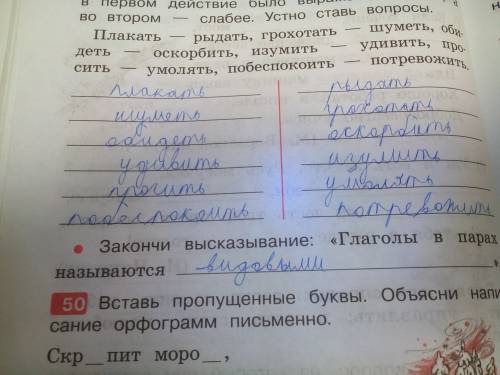 в первом действие было выраже
во втором — слабее. Устно ставь вопросы.
Плакать — рыдать, грохотать — шуметь, оби-
деть — оскорбить, изумить — удивить, про-
сить — умолять, побеспокоить — потревожить.
плакать рыдать
шуметь грохотать
обидеть оскорбить
удивить изумить
просить умолять
побеспокоить потревожить
• Закончи высказывание: «Глаголы в парах
называются видовыми
50 Вставь пропущенные буквы. Объясни напи-
сание орфограмм письменно.
Скр_пит моро_,